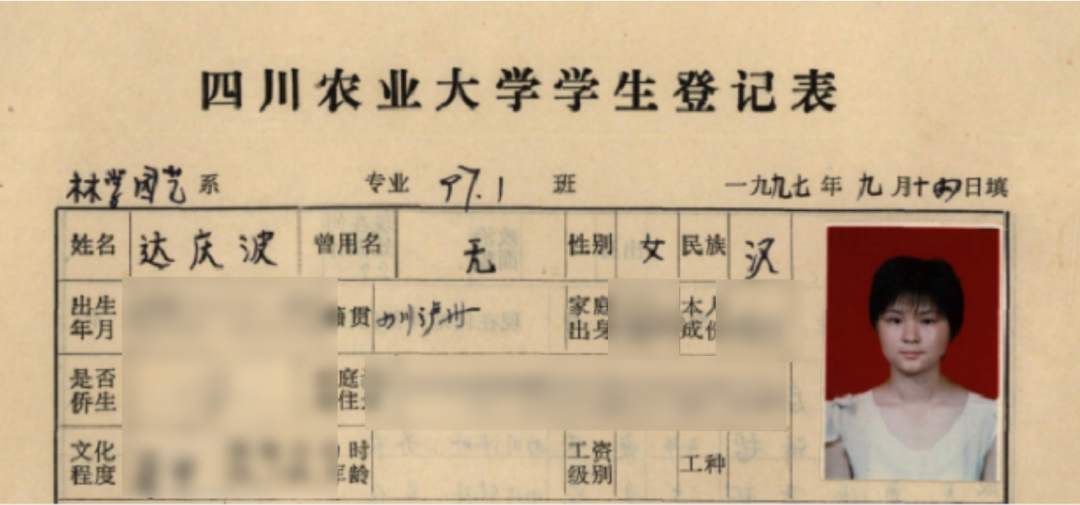 四川农业大学学生登记表
林学园艺系 专业 97.1 班 一九九七年九月十四日填
姓名 达庆波 曾用名 无 性别 女 民族 汉
出生年月 籍贯 四川泸州 家庭出身 本人成份
是否侨生 庭 住
文化程度 时 年龄 工资级别 工种